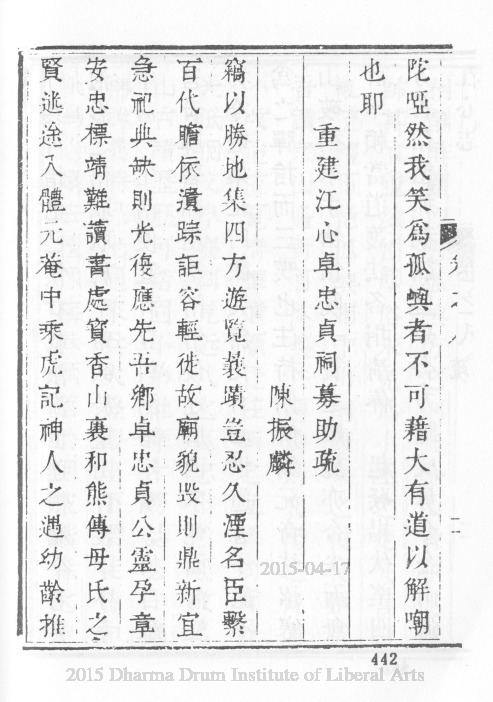 陀啞然我笑為孤嶼者不可藉大有道以解嘲
也耶
重建江心卓忠貞祠募助疏
陳振麟
竊以勝地集四方遊覽裝蹟豈忍久湮名臣繫
百代瞻依遺踪詎容輕徙故廟貌毀則鼎新宜
急祀典缺則光復應先吾鄉卓忠貞公靈孕章
安忠標靖難讀書處寶香山裏和熊傳母氏之
賢迷途入體元菴中乘虎記神人之遇幼齡推
2015-04-17
442
2015 Dharma Drum Institute of Liberal Arts